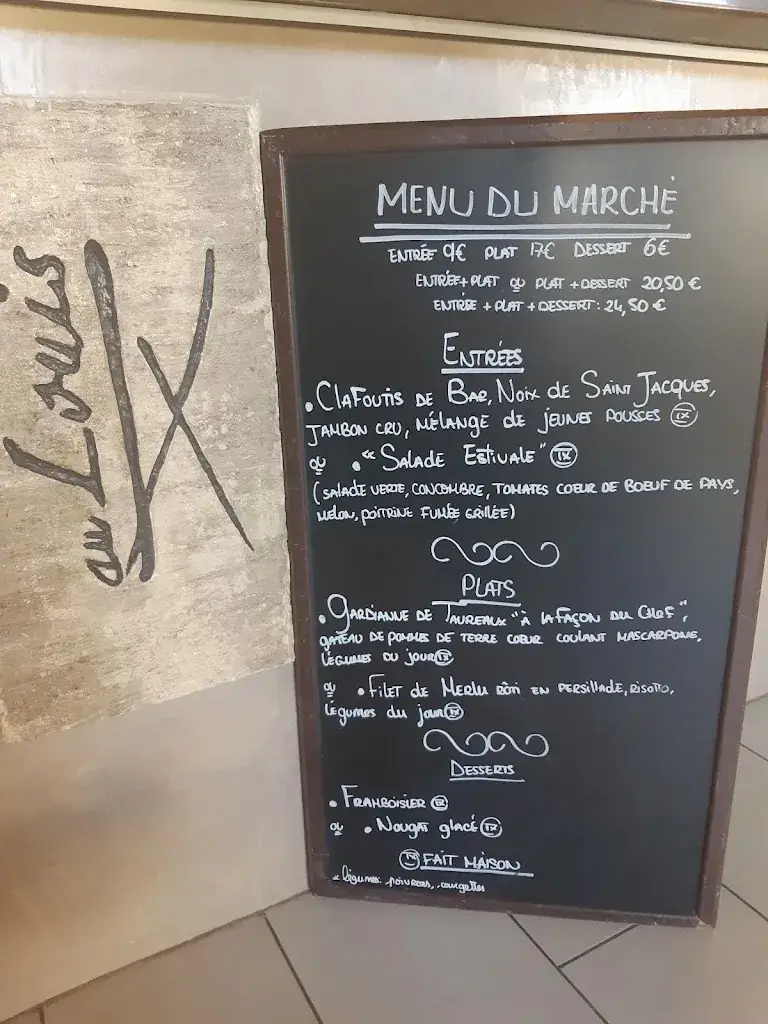 au Louis IX
MENU DU MARCHÉ
ENTRÉE 9€ PLAT 17€ DESSERT 6€
ENTRÉE+PLAT OU PLAT+DESSERT 20,50 €
ENTRÉE + PLAT + DESSERT : 24,50 €
ENTRÉES
• CLAFOUTIS DE BAR, NOIX DE SAINT JACQUES,
JAMBON CRU, MÉLANGE DE JEUNES POUSSES IX
OU • "SALADE ESTIVALE" IX
(SALADE VERTE, CONCOMBRE, TOMATES COEUR DE BOEUF DE PAYS,
MELON, POITRINE FUMÉE GRILLÉE)
PLATS
• GARDIANNE DE TAUREAUX "À LA FAÇON DU CHEF",
GATEAU DE POMMES DE TERRE COEUR COULANT MASCARPONE,
LÉGUMES DU JOUR IX
OU • FILET DE MERLU RÔTI EN PERSILLADE, RISOTTO,
LÉGUMES DU JOUR IX
DESSERTS
• FRAMBOISIER IX
OU • NOUGAT GLACÉ IX
IX FAIT MAISON
* légumes: poivrons, courgettes